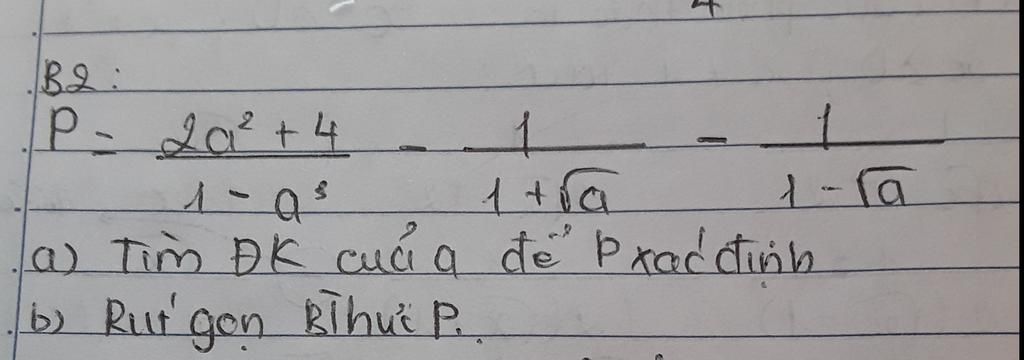 B2:
P = \frac{2a² + 4}{1 - a³} - \frac{1}{1 + \sqrt{a}} - \frac{1}{1 - \sqrt{a}}
a) Tìm ĐK của a để P xác định
b) Rút gọn BThức P.